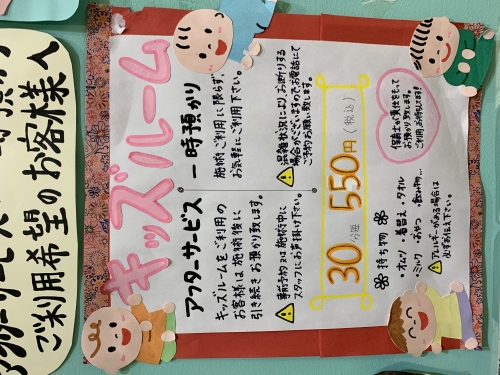 キッズルーム
アフターサービス
キッズルームをご利用の
お客様は施術後に
引き続きお預り致します。
事前予約又は施術中に
スタッフにお声掛け下さい。
一時預かり
施術ご利用に限らず、
お気軽にご利用下さい。
混雑状況によりお断りする
場合がございますのでお電話にて
ご予約お願い致します。
30分毎 550円(税込)
持ち物
・オムツ ・着替え ・タオル
・ミルク ・おやつ ・飲み物…
アレルギーがある場合は
必ずお伝え下さい。
保育士が責任をもって
お預かり致します。
ご利用お待ちしております!
アフターサービス
ご利用希望のお客様へ